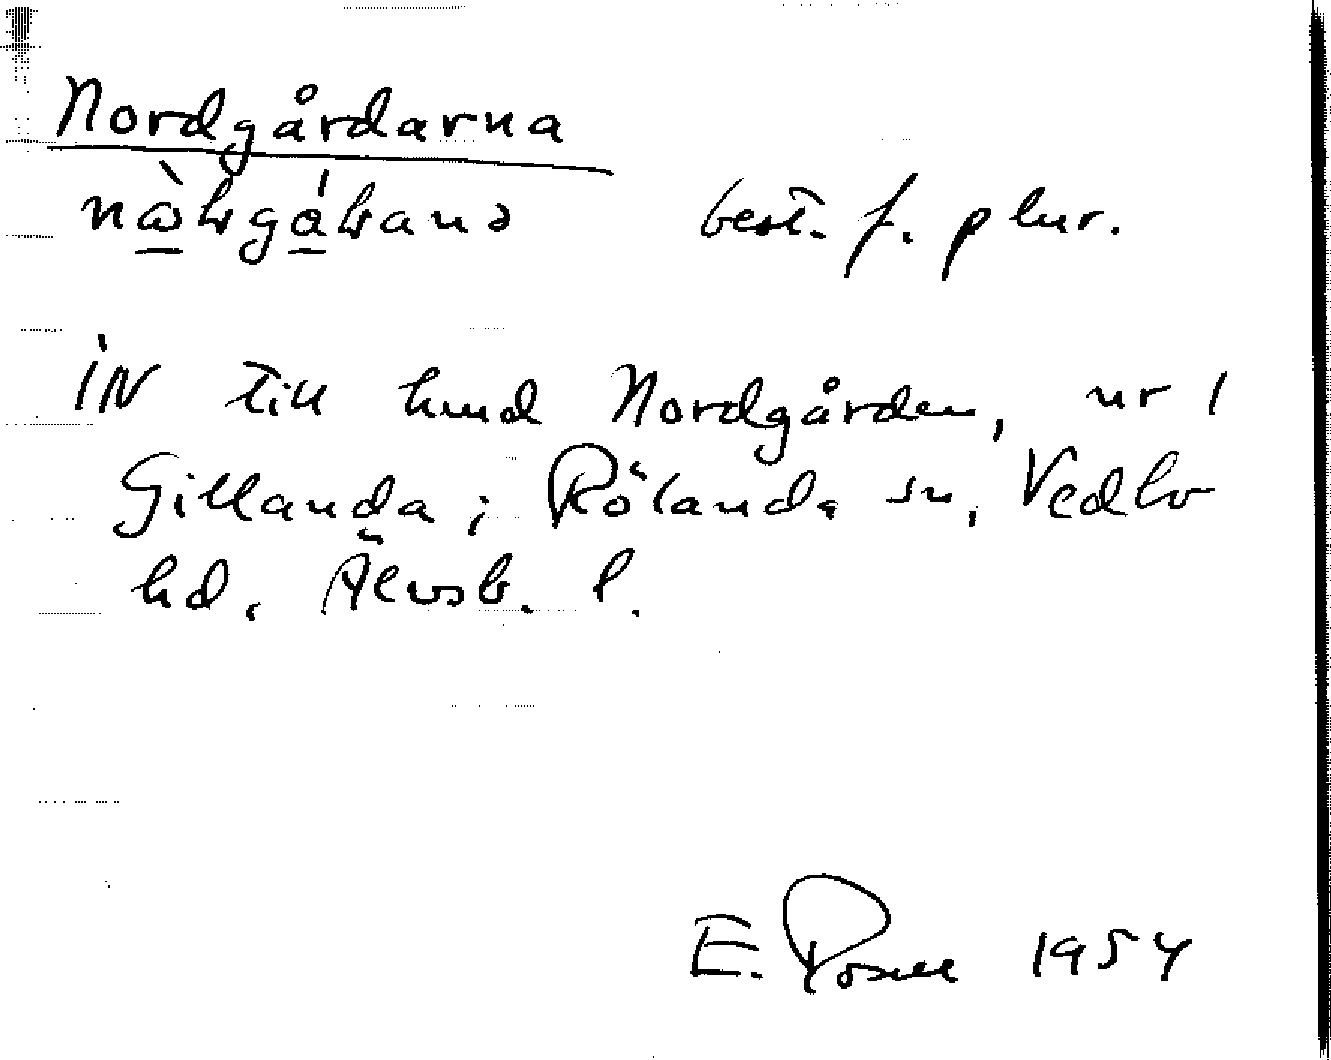 Nordgårdarna
best. f. plur.
IN till hmd Nordgården, nr 1
Gillanda; Rölanda sn, Vedbo
hd. Älvsb. l.
E. 1954